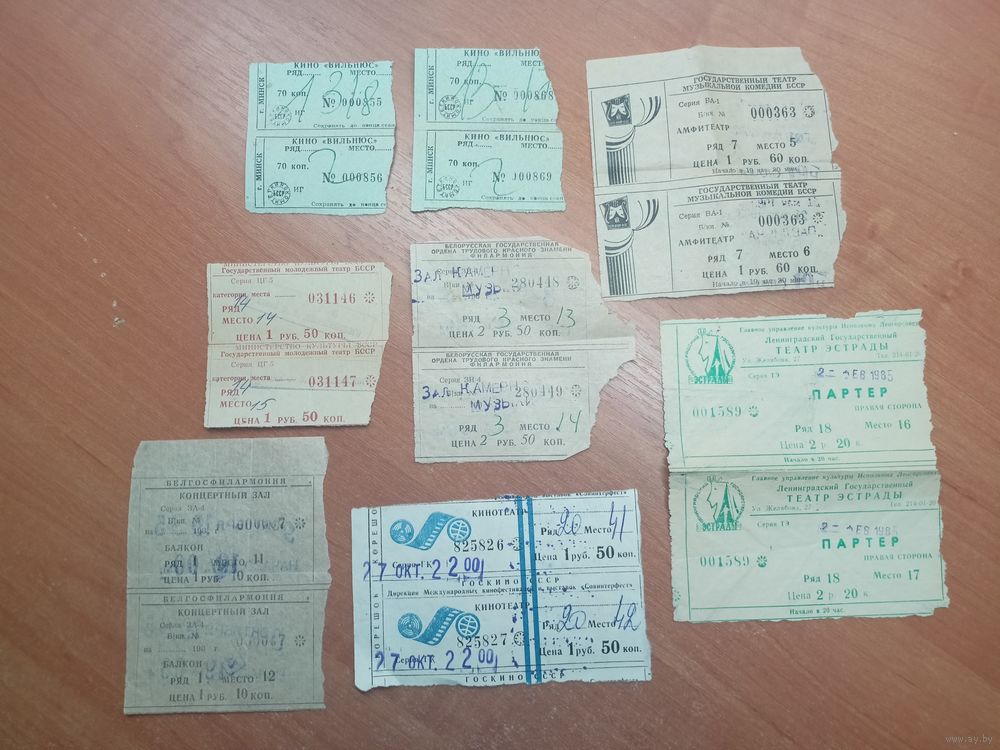 КИНО «ВИЛЬНЮС»
г. МИНСК
РЯД МЕСТО
70 коп.
№ 000855
Сохранять до конца сеан
КИНО «ВИЛЬНЮС»
г. МИНСК
РЯД МЕСТО
70 коп.
2
нг № 000856
Сохранять до конца сеан
КИНО «ВИЛЬНЮС»
г. МИНСК
РЯД МЕСТ
70 коп.
нг № 000868
Сохранять до конца сеан
КИНО «ВИЛЬНЮС»
г. МИНСК
РЯД МЕСТО
70 коп.
2
нг № 000869
Сохранять до конца сеан
ГОСУДАРСТВЕННЫЙ ТЕАТР
МУЗЫКАЛЬНОЙ КОМЕДИИ БССР
Серия ВА-1
Б/кн. № 000363
АМФИТЕАТР
РЯД 7 МЕСТО 5
ЦЕНА 1 РУБ. 60 КОП.
Начало в 19 час. 30 мин.
ГОСУДАРСТВЕННЫЙ ТЕАТР
МУЗЫКАЛЬНОЙ КОМЕДИИ БССР
Серия ВА-1
Б/кн. № 000363
АМФИТЕАТР
РЯД 7 МЕСТО 6
ЦЕНА 1 РУБ. 60 КОП.
Начало в 19 час. 30 мин.
Государственный молодежный театр БССР
Серия ЦГ-5
категория места 031146
РЯД 14
МЕСТО 14
ЦЕНА 1 РУБ. 50 КОП.
МИНИСТЕРСТВО КУЛЬТУРЫ БССР
Государственный молодежный театр БССР
Серия ЦГ-5
категория места 031147
РЯД 14
МЕСТО 15
ЦЕНА 1 РУБ. 50 КОП.
БЕЛОРУССКАЯ ГОСУДАРСТВЕННАЯ
ОРДЕНА ТРУДОВОГО КРАСНОГО ЗНАМЕНИ
ФИЛАРМОНИЯ
ЗАЛ КАМЕРН
МУЗЫ
280448
РЯД 3 МЕСТО 13
ЦЕНА 2 РУБ. 50 КОП.
БЕЛОРУССКАЯ ГОСУДАРСТВЕННАЯ
ОРДЕНА ТРУДОВОГО КРАСНОГО ЗНАМЕНИ
ФИЛАРМОНИЯ
ЗАЛ КАМЕРН
МУЗЫКИ
280449
РЯД 3 МЕСТО 14
ЦЕНА 2 РУБ. 50 КОП.
Главное управление культуры Исполкома Ленгорсовета
Ленинградский Государственный
ТЕАТР ЭСТРАДЫ
Ул. Желябова, 27 Тел. 214-01-20
ЭСТРАДЫ
Серия ТЭ
2- ФЕВ 1985
ПАРТЕР
001589
ПРАВАЯ СТОРОНА
Ряд 18 Место 16
Цена 2 р. 20 к.
Начало в 20 час.
Главное управление культуры Исполкома Ленгорсовета
Ленинградский Государственный
ТЕАТР ЭСТРАДЫ
Ул. Желябова, 27 Тел. 214-01-20
ЭСТРАДЫ
Серия ТЭ
2- ФЕВ 1985
ПАРТЕР
001589
ПРАВАЯ СТОРОНА
Ряд 18 Место 17
Цена 2 р. 20 к.
Начало в 20 час.
БЕЛГОСФИЛАРМОНИЯ
КОНЦЕРТНЫЙ ЗАЛ
Серия ЗА-4
Б/кн. №
БАЛКОН
РЯД 1 МЕСТО 11
ЦЕНА 1 РУБ. 10 КОП.
БЕЛГОСФИЛАРМОНИЯ
КОНЦЕРТНЫЙ ЗАЛ
Серия ЗА-4
Б/кн. №
БАЛКОН
РЯД 1 МЕСТО 12
ЦЕНА 1 РУБ. 10 КОП.
КИНОТЕАТР
825826
Ряд 20 Место 41
Цена 1 руб. 50 коп.
27 ОКТ. 22 00
ГОСКИНО СССР
Дирекция Международных кинофестивалей и выставок «Совинтерфест»
КИНОТЕАТР
825827
Ряд 20 Место 42
Цена 1 руб. 50 коп.
27 ОКТ. 22 00
ГОСКИНО СССР
www.ay.by